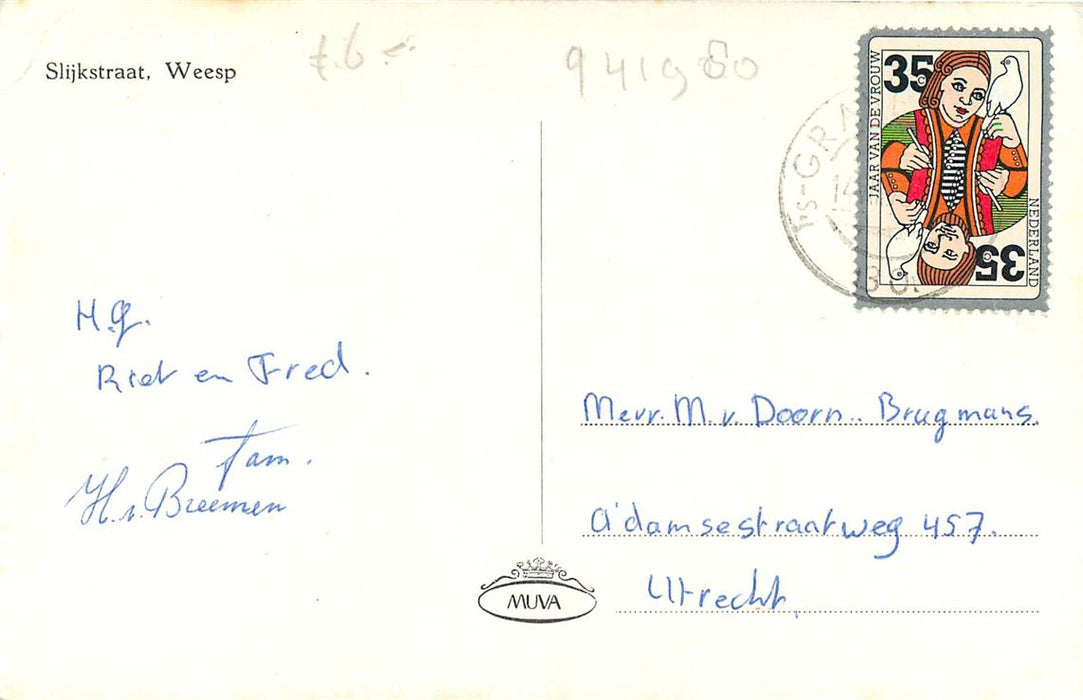 Slijkstraat, Weesp
f.6.-
941980
35
JAAR VAN DE VROUW
NEDERLAND
35
's-GRA
14
H.g.
Riet en Fred.
fam.
H.v. Breemen
Mevr. M. v. Doorn.. Brugmans.
A'damsestraatweg 457.
Utrecht,
MUVA